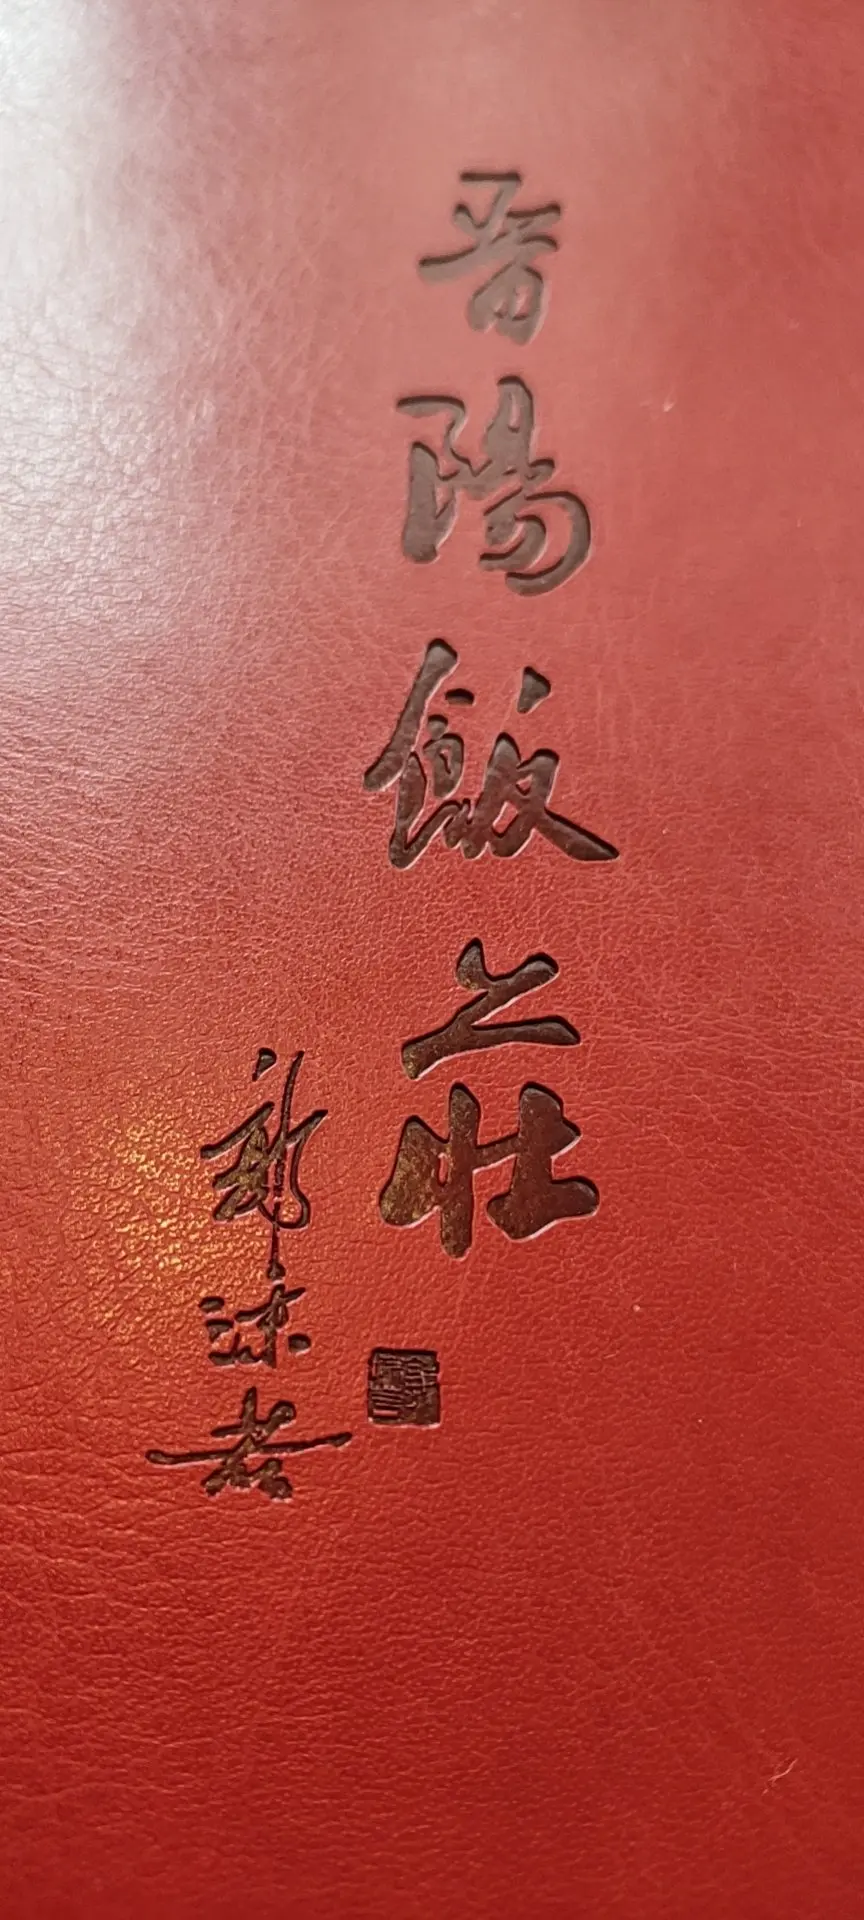 晋陽飯莊
郭沫若